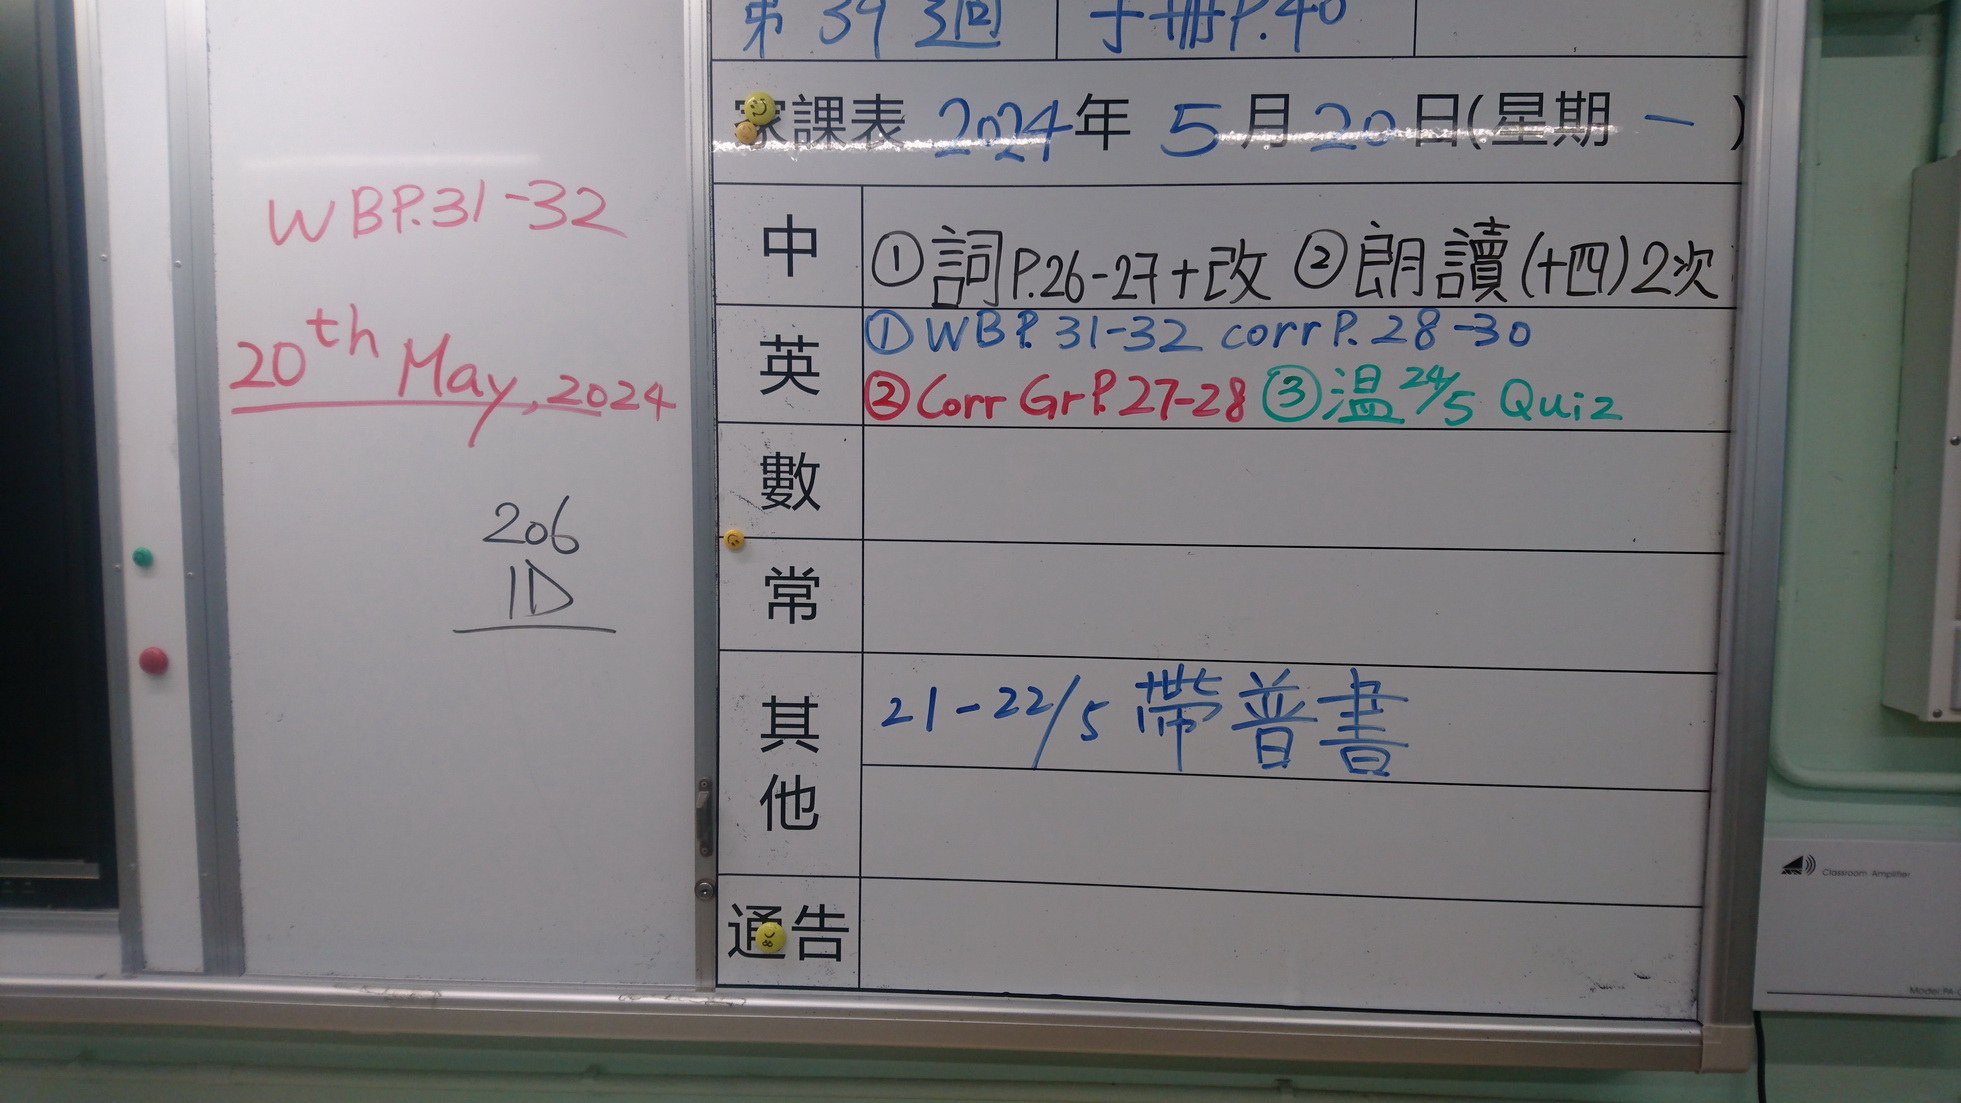 WB P.31-32
20th May, 2024
206
1D
第 39 週 手冊P.40
家課表 2024年 5月20日(星期 一 )
中 ①詞P.26-27+改 ②朗讀(十四)2次
英 ①WB P. 31-32 corr P. 28-30
②Corr Gr P. 27-28 ③溫 24/5 Quiz
數
常
其他 21-22/5 帶普書
通告
Classroom Amplifier